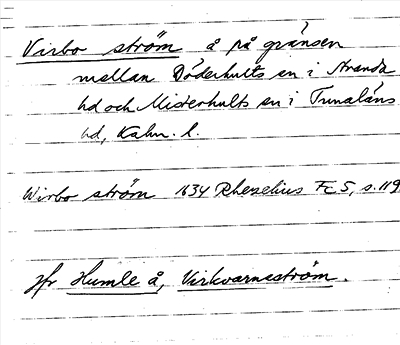 Virbo ström å på gränsen
mellan Döderhults sn i Stranda
hd och Misterhults sn i Tunaläns
hd, Kalm. l.
Wirbo ström 1634 Rhezelius Fc 5, s. 119
Jfr Humle å, Virkvarnsström.